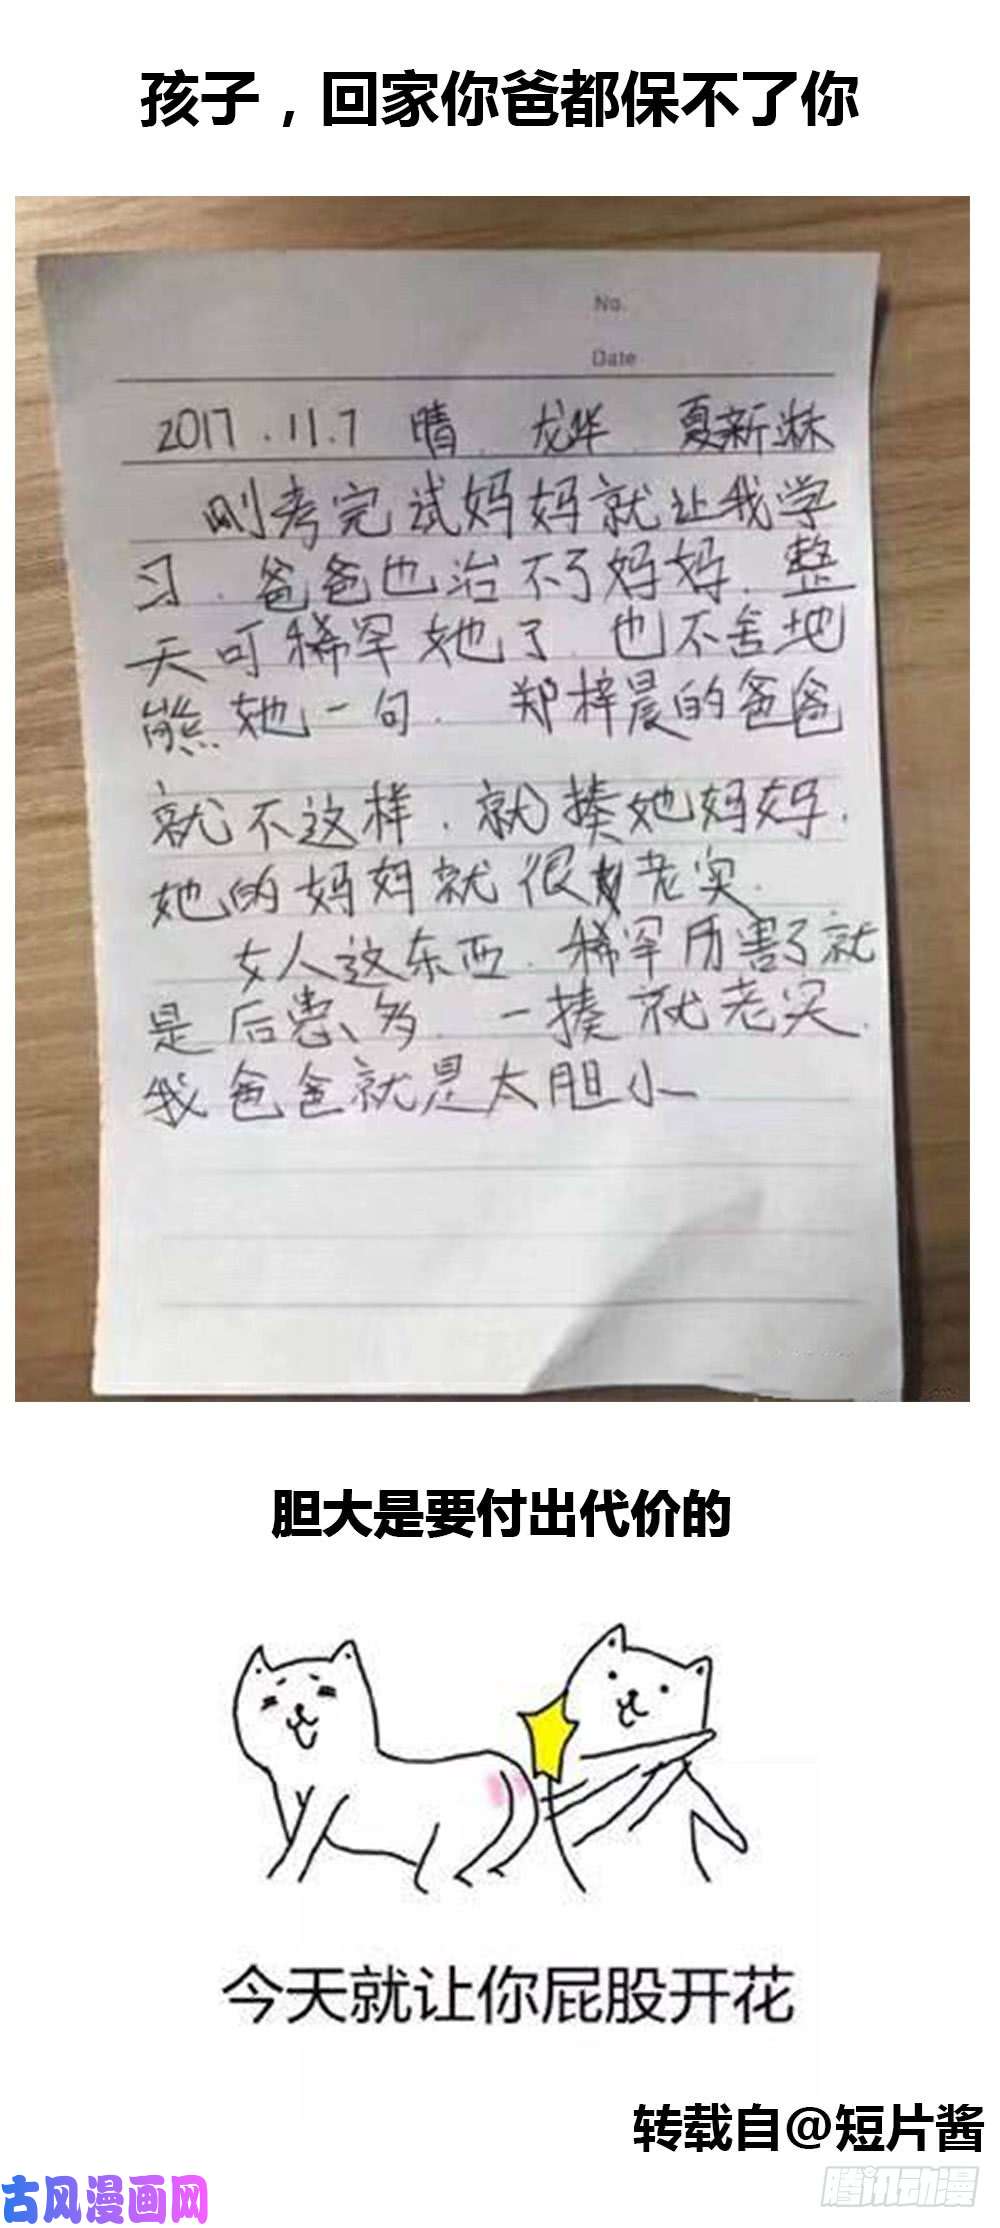 孩子，回家你爸都保不了你
No.
Date
2017.11.7 晴. 龙华. 夏新淋
刚考完试妈妈就让我学
习.爸爸也治不了妈妈.整
天可稀罕她了.也不舍地
熊她一句. 郑梓晨的爸爸
就不这样.就揍她妈妈.
她的妈妈就很老实.
女人这东西.稀罕历害了就
是后患多.一揍就老实.
我爸爸就是太胆小
胆大是要付出代价的
今天就让你屁股开花
转载自@短片酱
古风漫画网
腾讯动漫